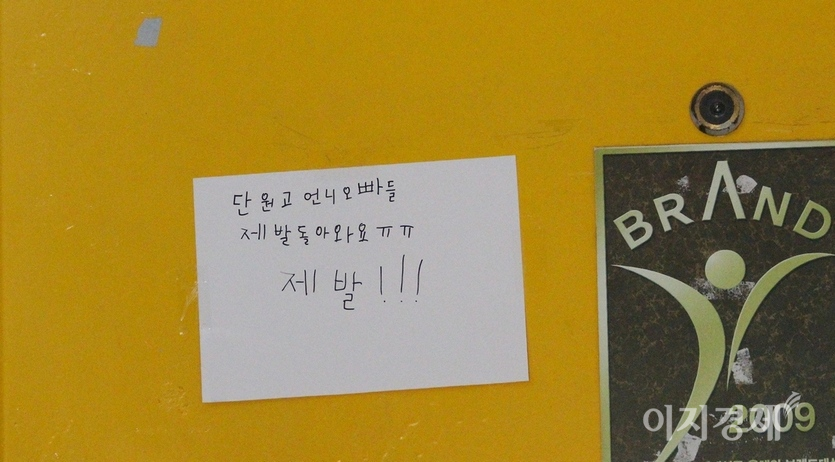 단원고 언니오빠들
제발돌아와요 ㅠㅠ
제발!!!
BRAND
2009
이지경제